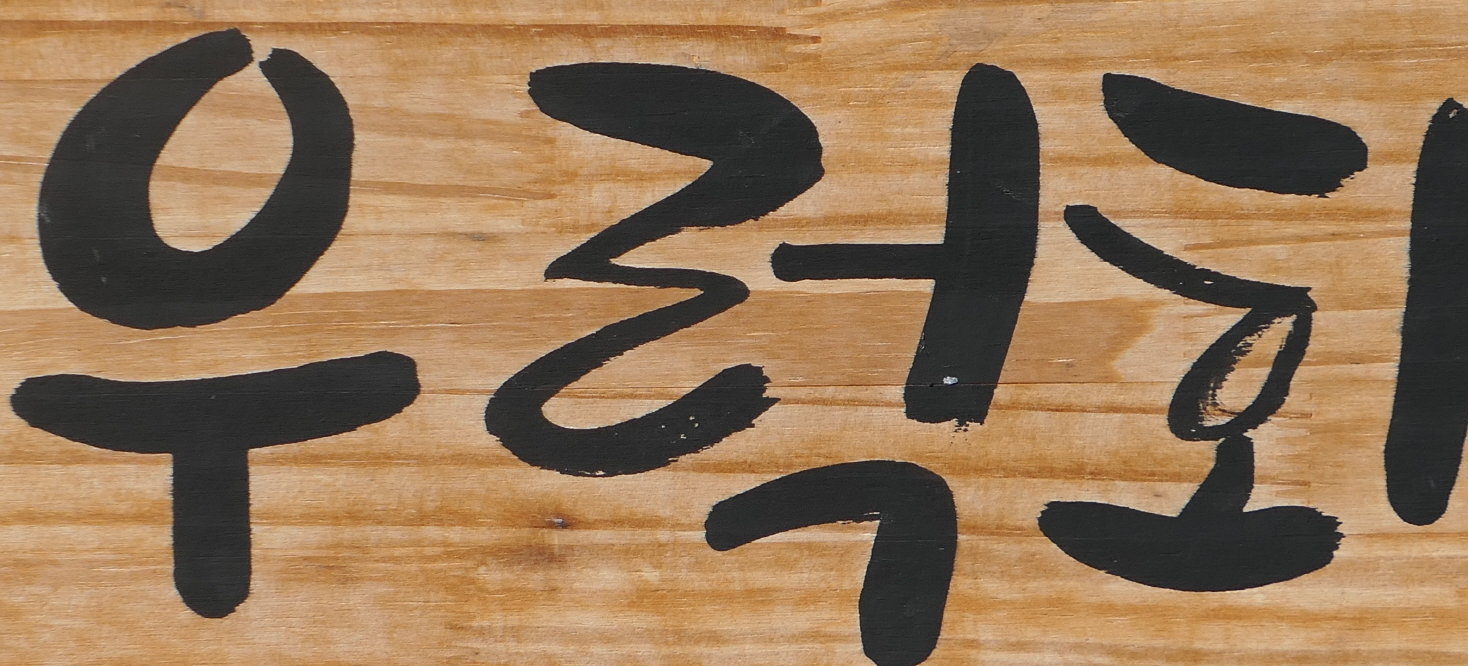 우럭회